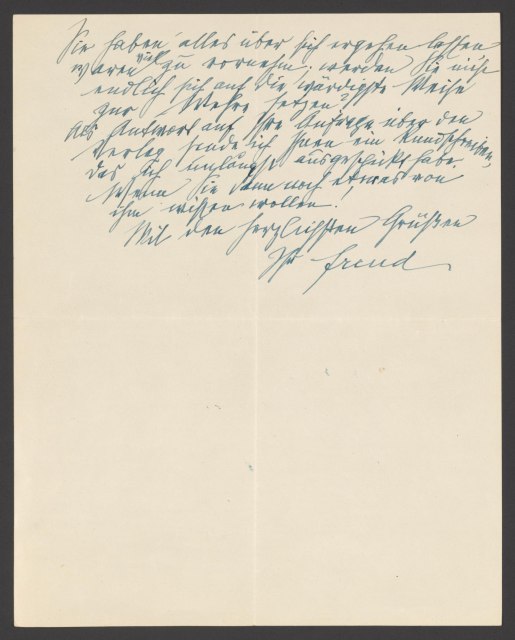 Sie haben alles über sich ergehen lassen
waren viel zu vornehm; werden Sie nicht
endlich sich auf die würdigste Weise
zur Wehre setzen?
Als Antwort auf Ihre Anfrage über den
Verlag sende ich Ihnen ein Rundschreiben,
das ich unlängst ausgeschickt habe.
Wenn Sie dann noch etwas von
ihm wissen wollen!
Mit den herzlichsten Grüßen
Ihr Freud